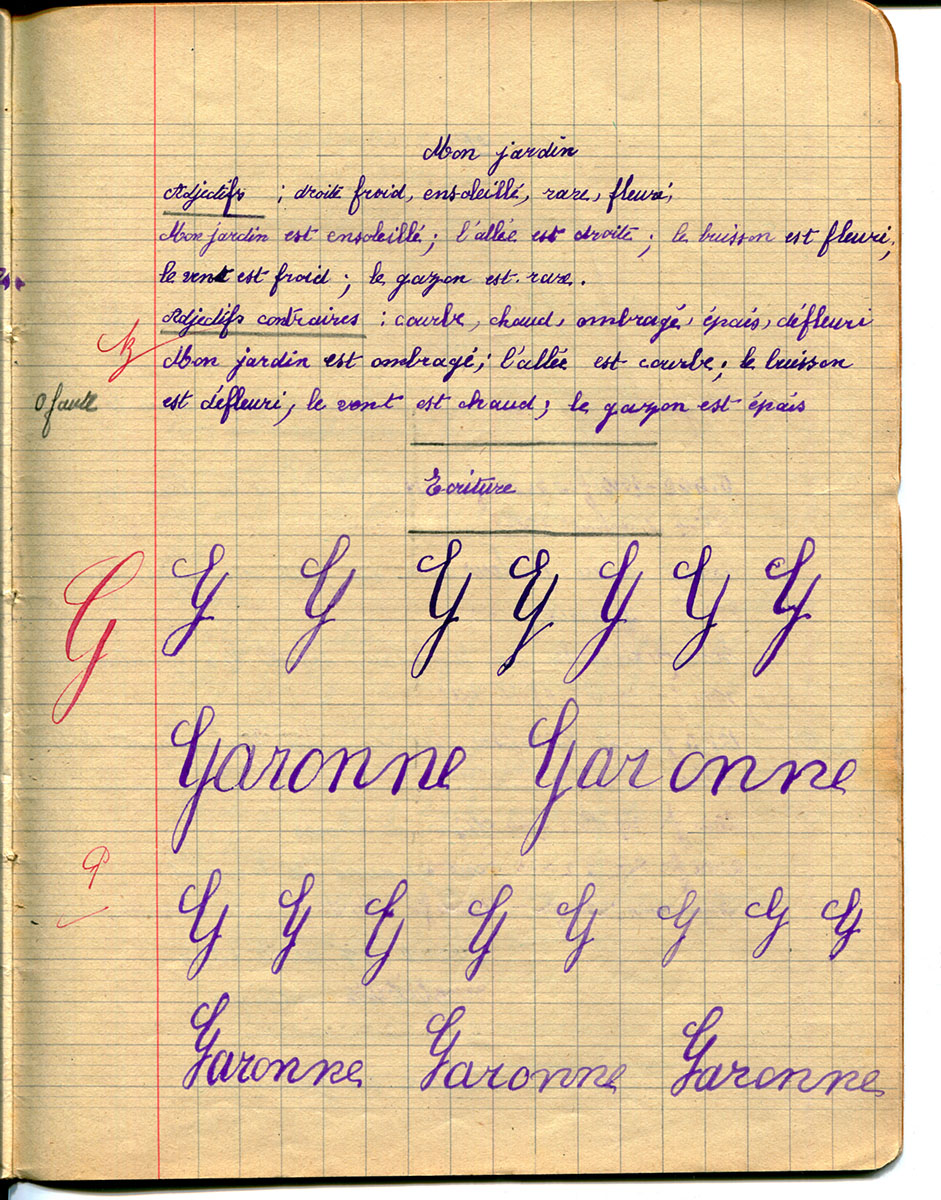 Mon jardin
Adjectifs : droite froid, ensoleillé, rare, fleuri,
Mon jardin est ensoleillé ; l'allée est droite ; le buisson est fleuri ;
le vent est froid ; le gazon est rare.
Adjectifs contraires : courbe, chaud, ombragé, épais, défleuri
Mon jardin est ombragé ; l'allée est courbe ; le buisson
0 faute
est défleuri, le vent est chaud ; le gazon est épais
Ecriture
G G G G G G G G
Garonne Garonne
G G G G G G G G
Garonne Garonne Garonne